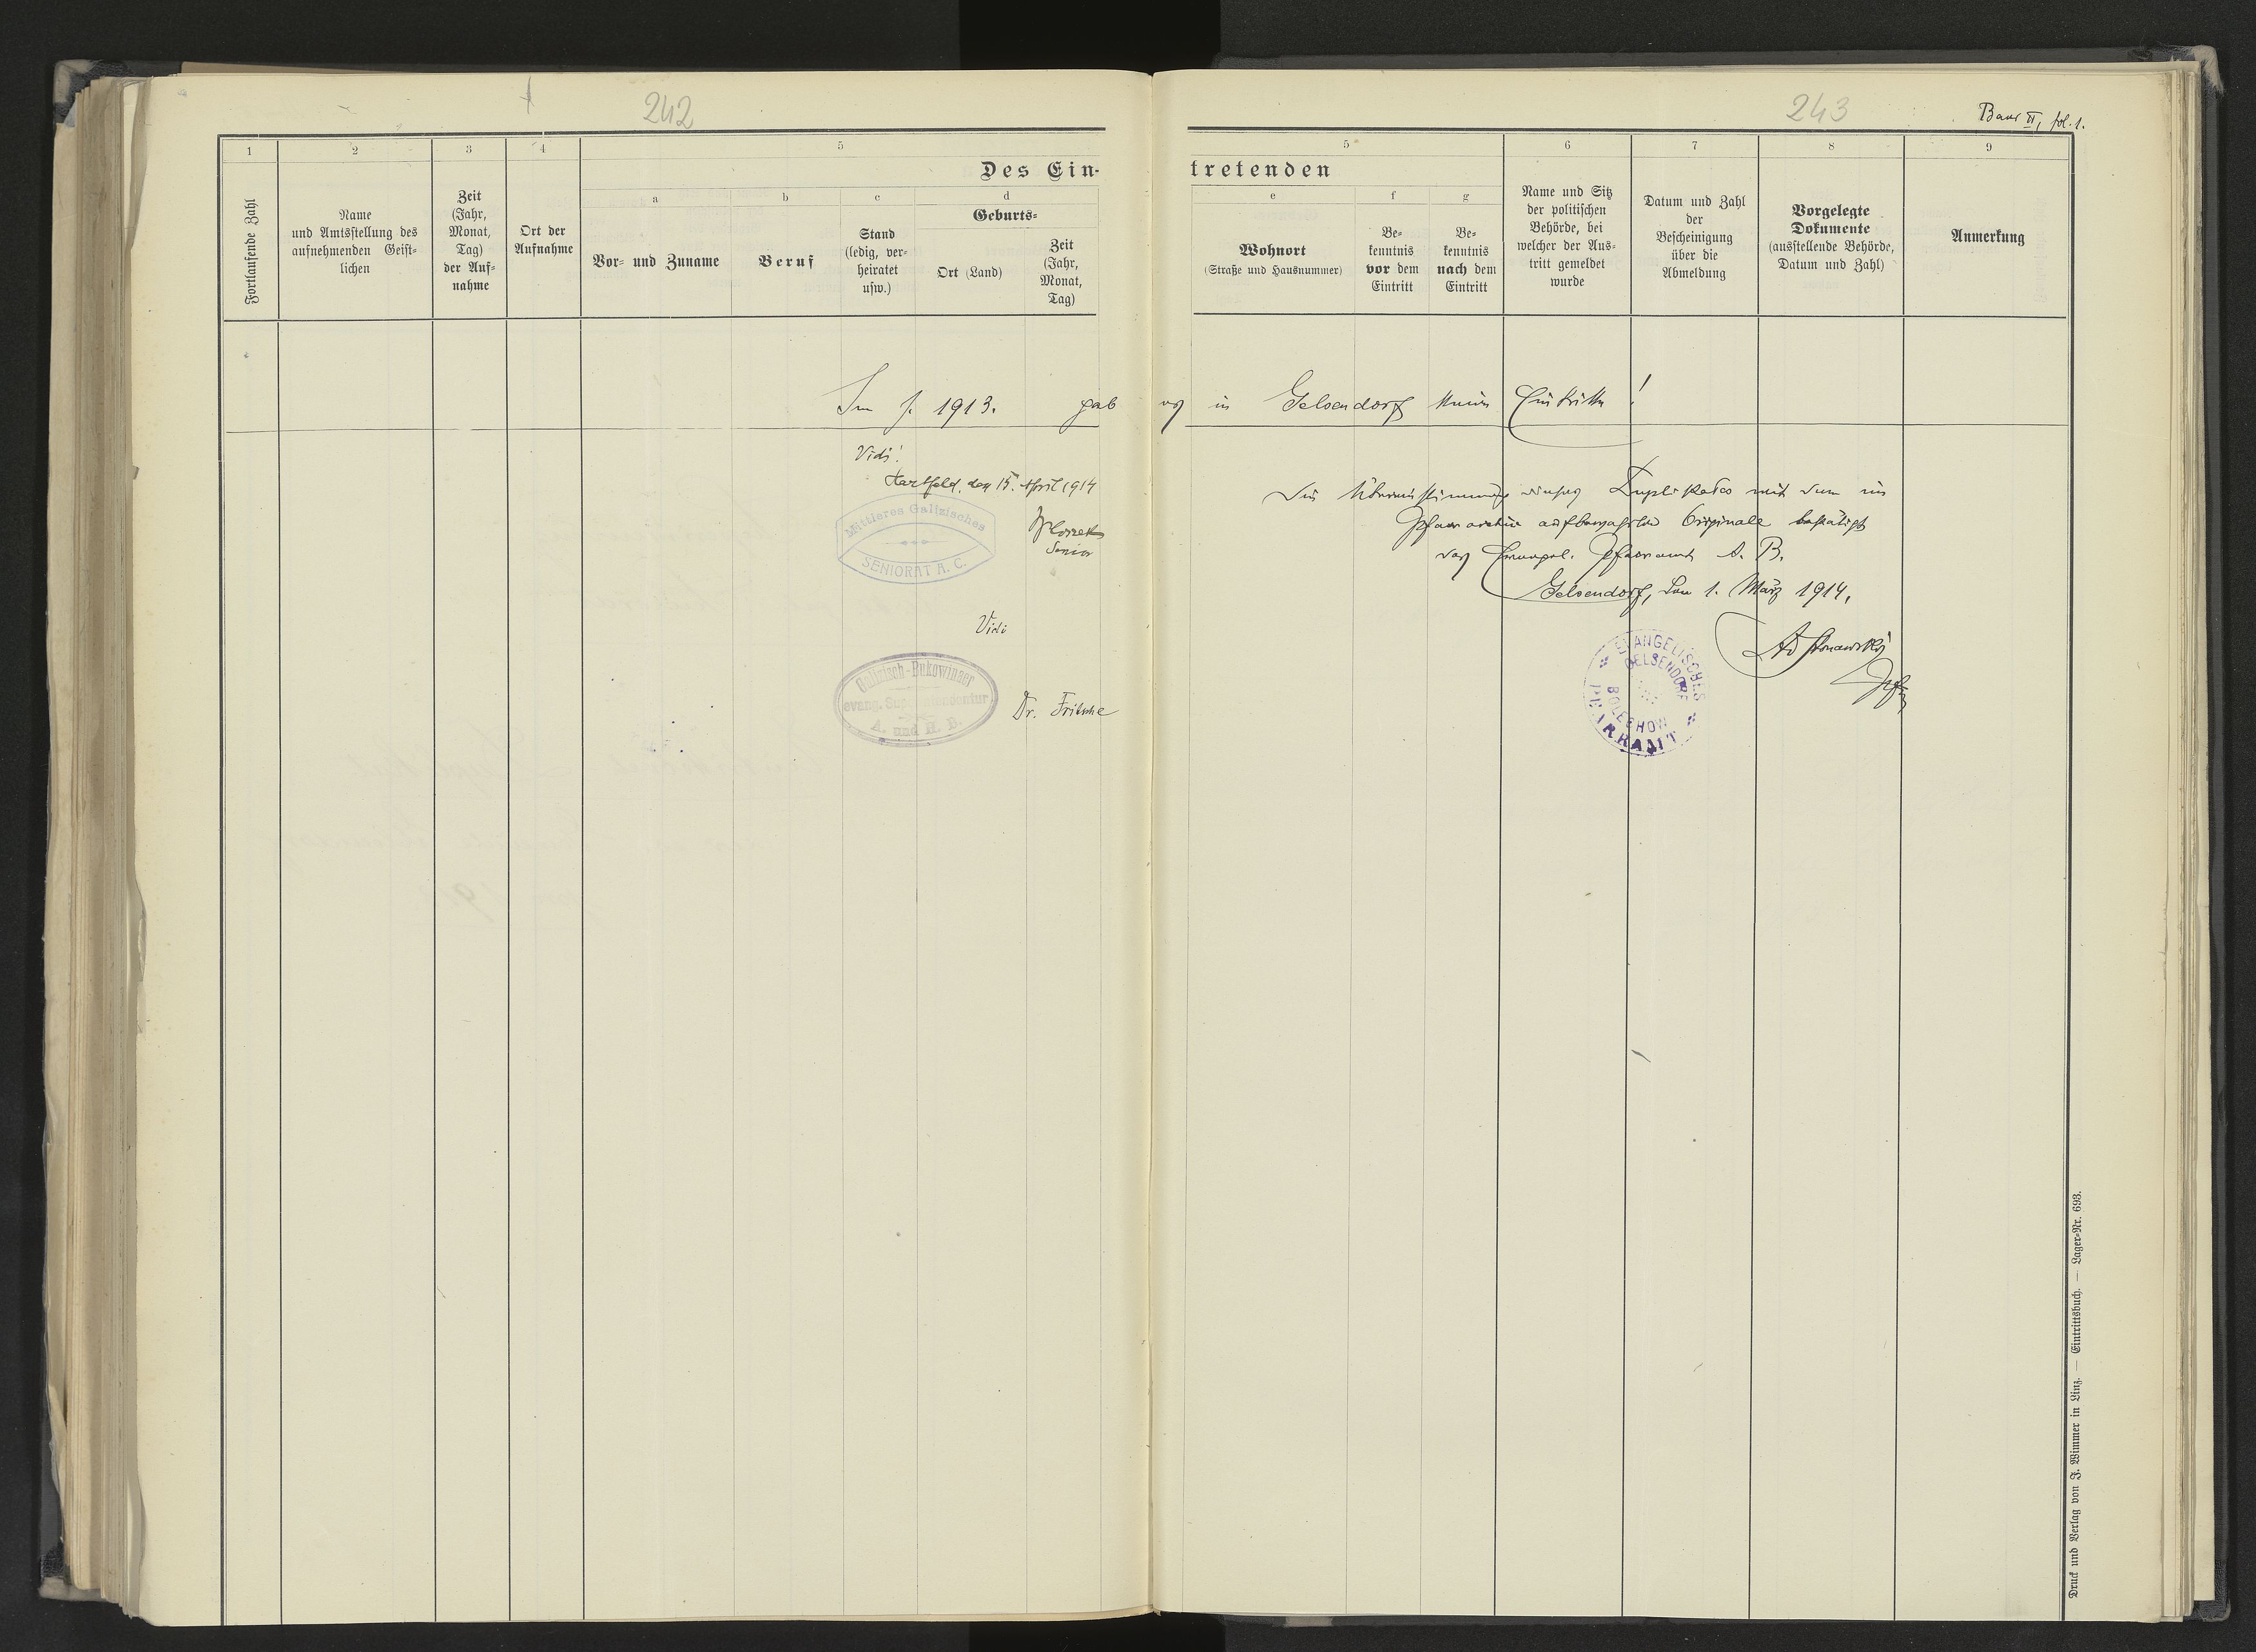 242
1
2
3
4
5
Des Ein-
Fortlaufende Zahl
Name
und Amtsstellung des
aufnehmenden Geist-
lichen
Zeit
(Jahr,
Monat,
Tag)
der Auf-
nahme
Ort der
Aufnahme
a
Vor- und Zuname
b
Beruf
c
Stand
(ledig, ver-
heiratet
usw.)
d
Geburts-
Ort (Land)
Zeit
(Jahr,
Monat,
Tag)
Im J. 1913. gab
Vidi!
Hartfeld, den 15. April 1914
Mittleres Galizisches
SENIORAT A. C.
Senior
Vidi
Galizisch-Bukowinaer
evang. Superintendentur
A. und H. B.
Dr. Fritsche
243
Band II, fol. 1.
5
6
7
8
9
tretenden
e
Wohnort
(Straße und Hausnummer)
f
Be-
kenntnis
vor dem
Eintritt
g
Be-
kenntnis
nach dem
Eintritt
Name und Sitz
der politischen
Behörde, bei
welcher der Aus-
tritt gemeldet
wurde
Datum und Zahl
der
Bescheinigung
über die
Abmeldung
Vorgelegte
Dokumente
(ausstellende Behörde,
Datum und Zahl)
Anmerkung
es in Gelsendorf keine Eintritte!
Die Übereinstimmung dieses Duplikates mit dem im
Pfarrarchiv aufbewahrten Originale bestätigt
das Evangel. Pfarramt A. B.
Gelsendorf, den 1. März 1914.
EVANGELISCHES
GELSENDORF
BOLECHOW
PFARRAMT
Druck und Verlag von J. Wimmer in Linz. — Eintrittsbuch. — Lager-Nr. 693.